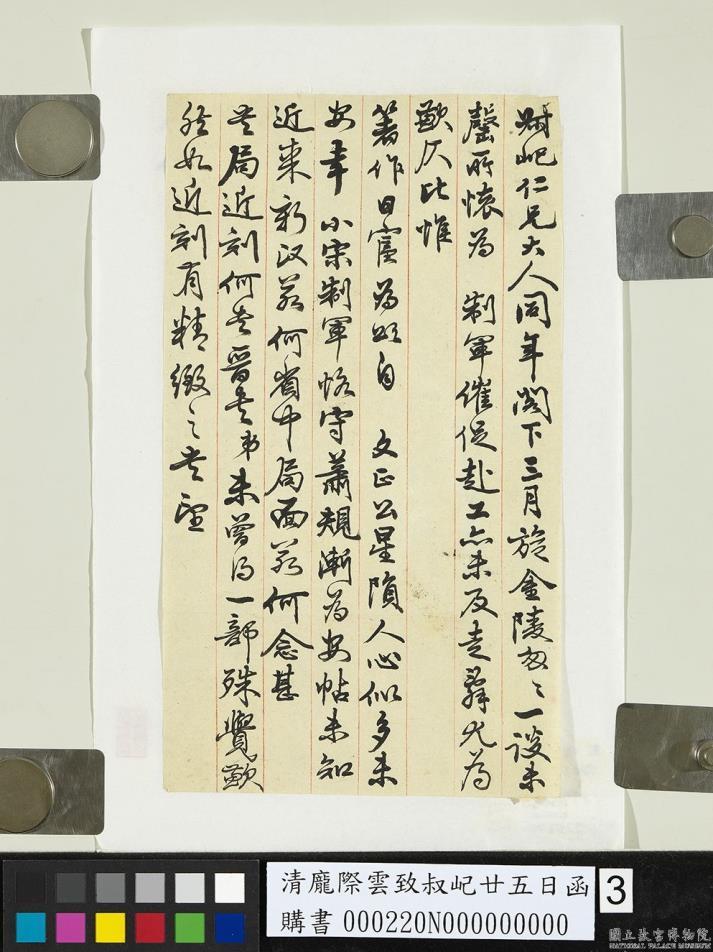 尗屺仁兄大人同年閣下三月旋金陵匆匆一談未
罄所懷為 制軍催促赴工亦未及走辭尤為
歉仄比惟
箸作日富為頌自 文正公星隕人心似多未
安幸 小宋制軍恪守蕭規漸為安帖未知
近來新政若何省中局面若何念甚
書局近刻何書晉書弟未曾得一部殊覺歉
然如近刻有精緻之書望
清龐際雲致叔屺廿五日函
購書 000220N000000000
3
國立故宮博物院
NATIONAL PALACE MUSEUM